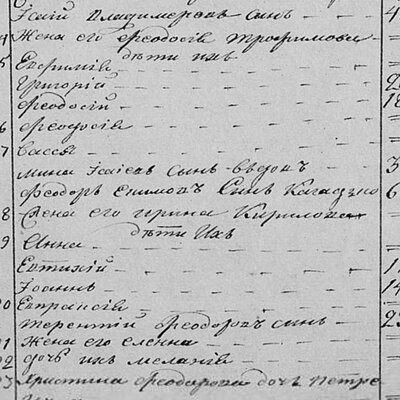 Исаій Владимеровъ сынъ 4
4 Жена его Феодосія Трофимова
5 дѣти ихъ
Евфимій
Григорій 2
Феодосій 18
6 Феодосія
7 Васса
мина Исаіевъ сынъ вдовъ 3
Феодоръ Екимовъ Сынъ 6
8 Жена его ирина Кирилова
9 дѣти Ихъ
Анна
Евтихій 1
Іоаннъ 14
20 Евпраксія
терентій Феодоровъ сынъ 2
21 Жена его елена
22 дочь ихъ меланія
23 христина Феодорова дочь петре